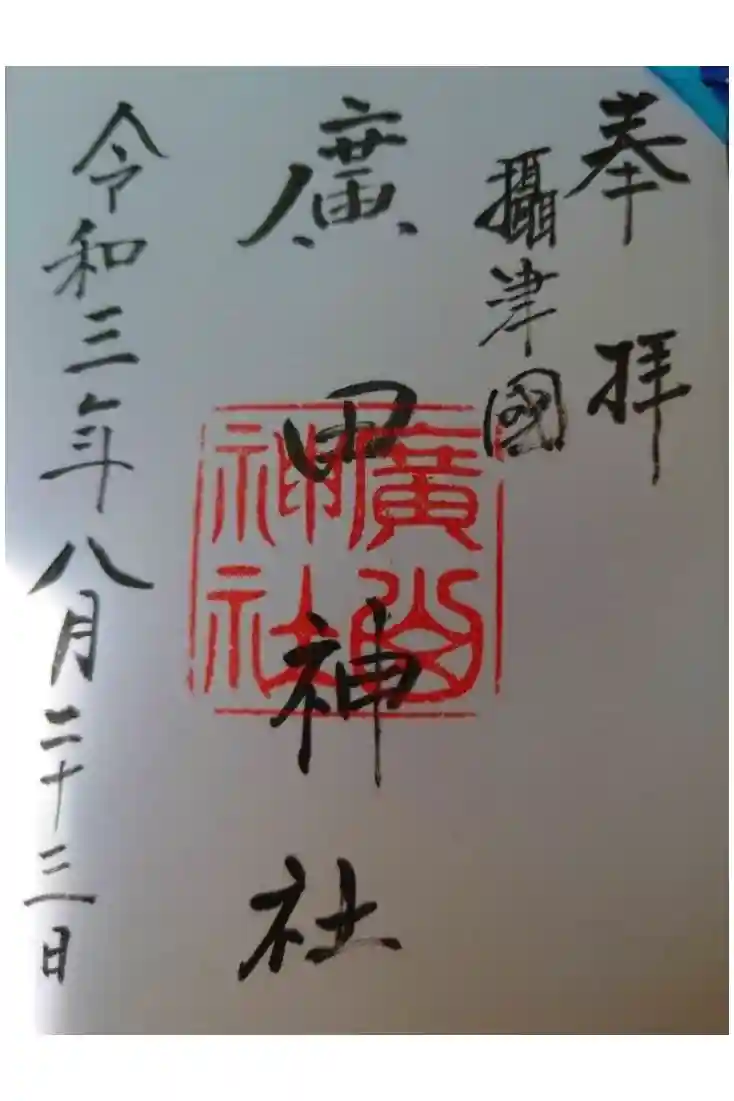 奉拝
攝津國
廣田神社
廣
神社
令和三年八月二十三日